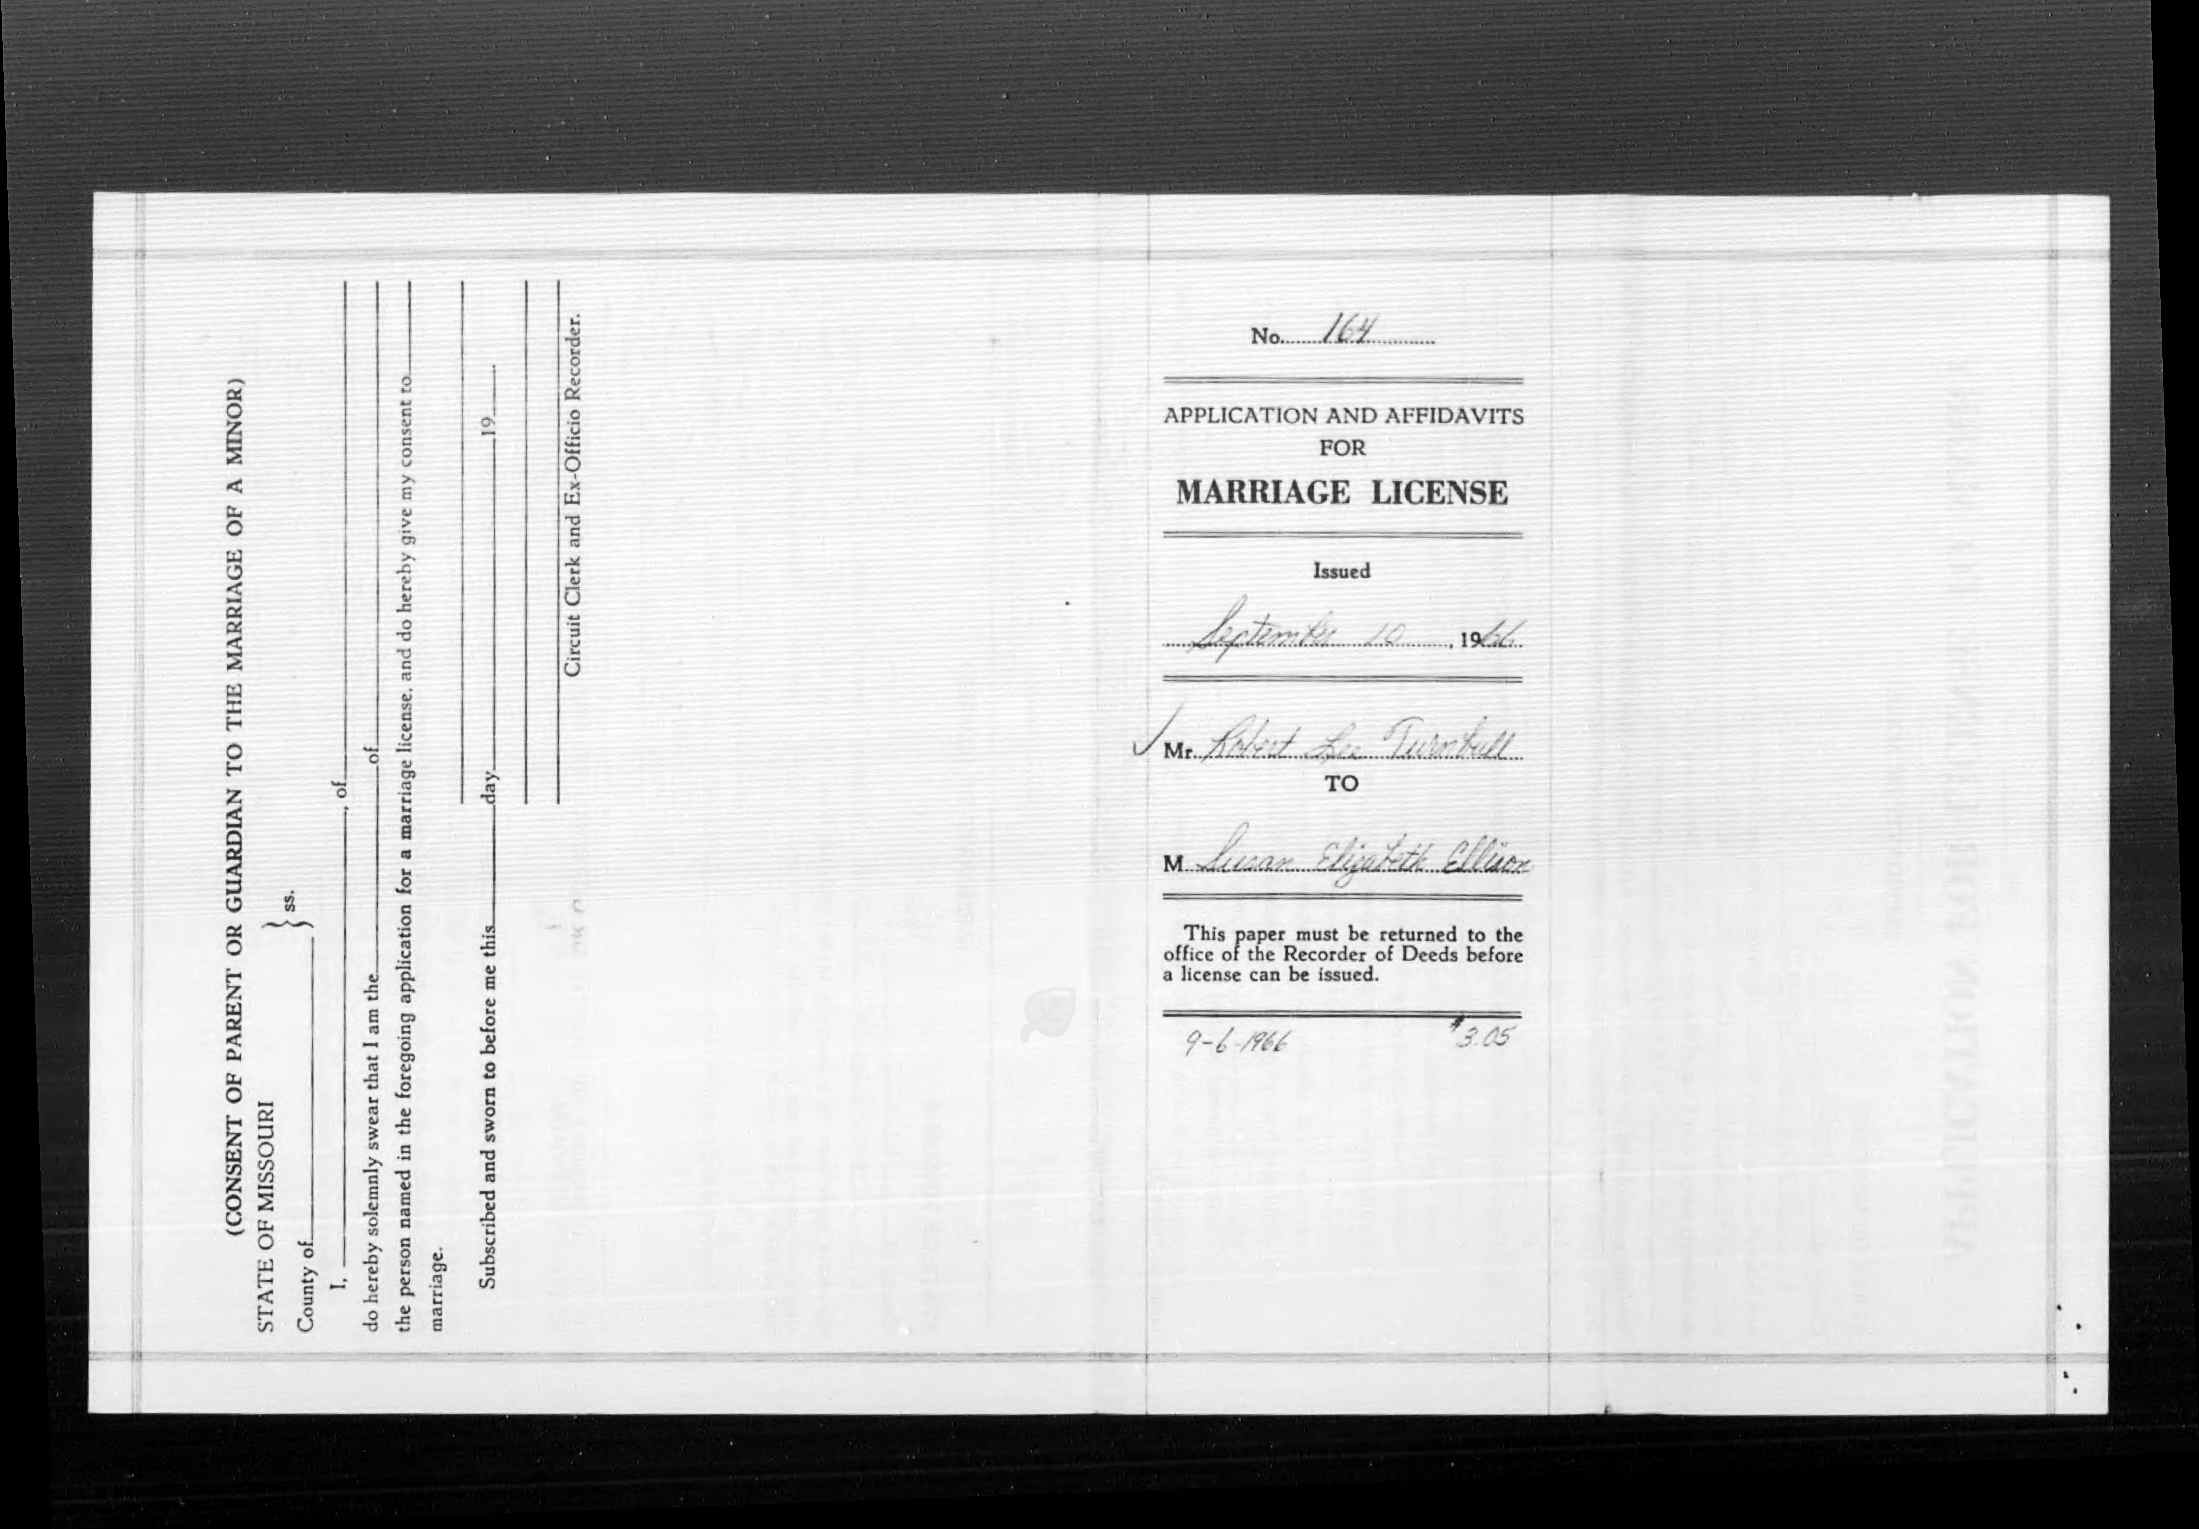 (CONSENT OF PARENT OR GUARDIAN TO THE MARRIAGE OF A MINOR)
STATE OF MISSOURI
County of } ss.
I, , of
do hereby solemnly swear that I am the of
the person named in the foregoing application for a marriage license, and do hereby give my consent to
marriage.
Subscribed and sworn to before me this day 19
Circuit Clerk and Ex-Officio Recorder.
No. 164
APPLICATION AND AFFIDAVITS
FOR
MARRIAGE LICENSE
Issued
September 10, 1966
Mr. Robert Lee Turnbull
TO
M Susan Elizabeth Ellison
This paper must be returned to the
office of the Recorder of Deeds before
a license can be issued.
9-6-1966 $3.05